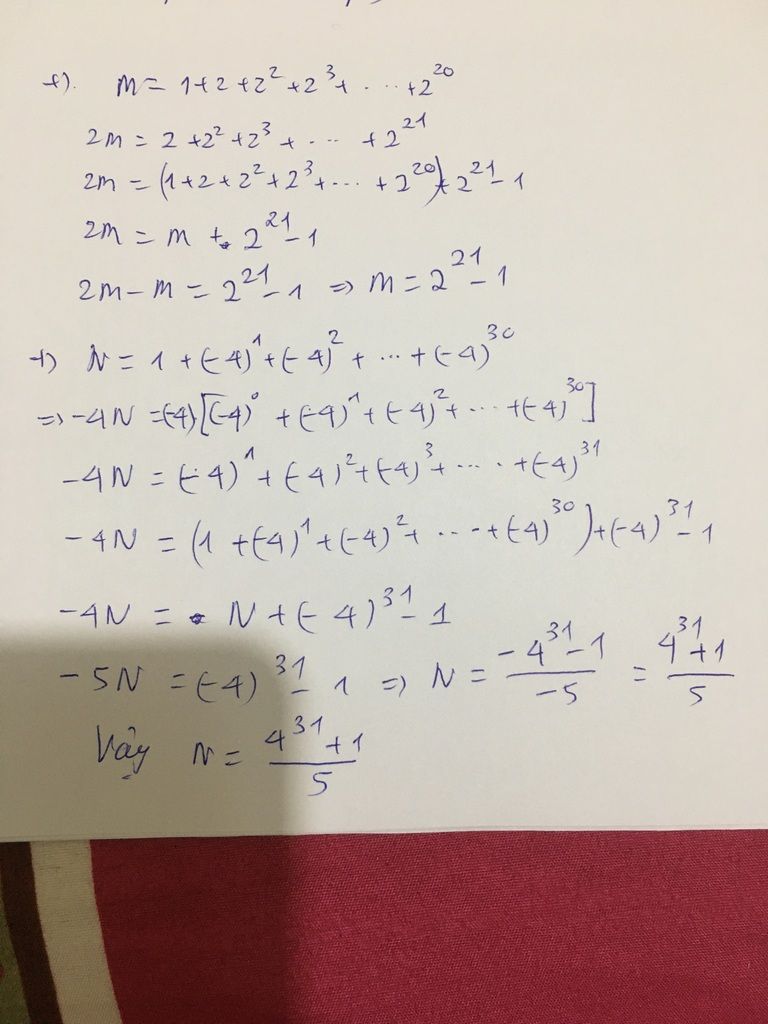 +). M = 1+2+2²+2³+ ... +2²⁰
2M = 2+2²+2³+ ... +2²¹
2M = (1+2+2²+2³+...+2²⁰)+2²¹-1
2M = M + 2²¹-1
2M-M = 2²¹-1 => M = 2²¹-1
+) N = 1+(-4)¹+(-4)²+ ... +(-4)³⁰
=> -4N = (-4)[(-4)⁰+(-4)¹+(-4)²+...+(-4)³⁰]
-4N = (-4)¹+(-4)²+(-4)³+ .... +(-4)³¹
-4N = (1+(-4)¹+(-4)²+ ... +(-4)³⁰)+(-4)³¹-1
-4N = N+(-4)³¹-1
-5N = (-4)³¹-1 => N = (-4³¹-1)/(-5) = (4³¹+1)/5
Vậy N = (4³¹+1)/5